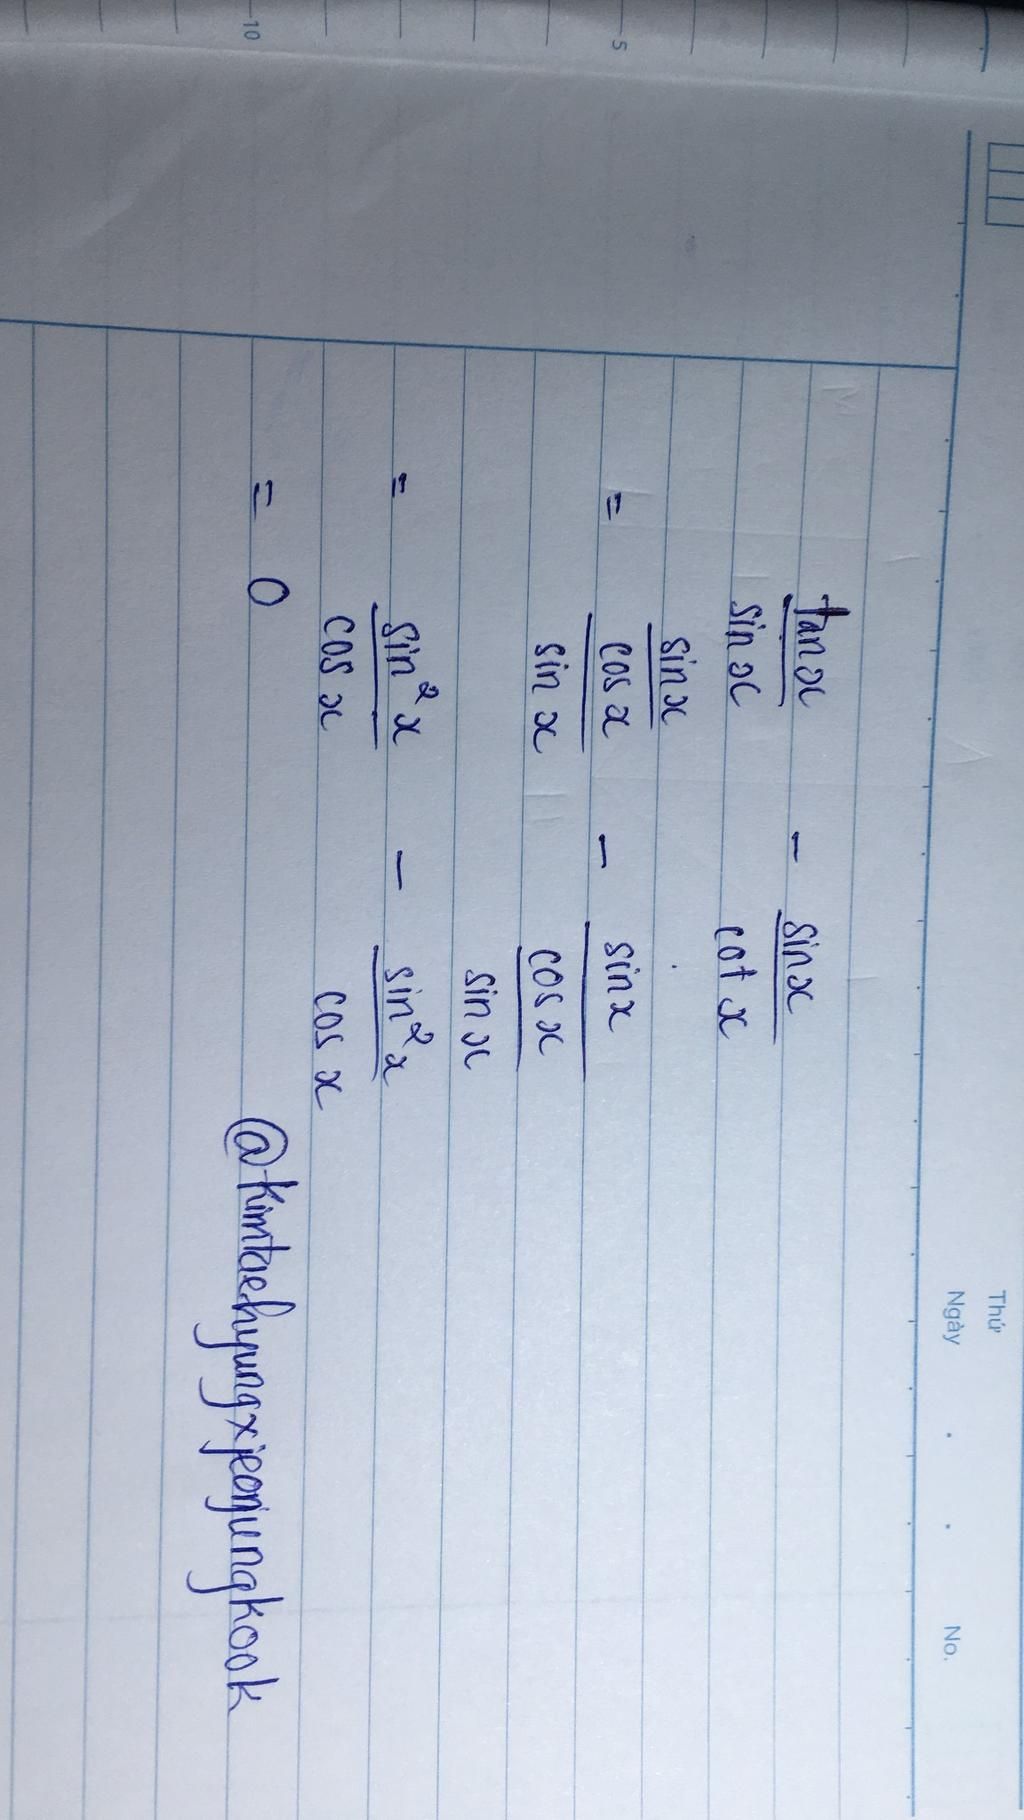 Thứ
Ngày . . No.
tan x / sin x - sin x / cot x
= (sin x / cos x) / sin x - sin x / (cos x / sin x)
5
= sin² x / cos x - sin² x / cos x
= 0
@kimtaehyungxjeonjungkook
10